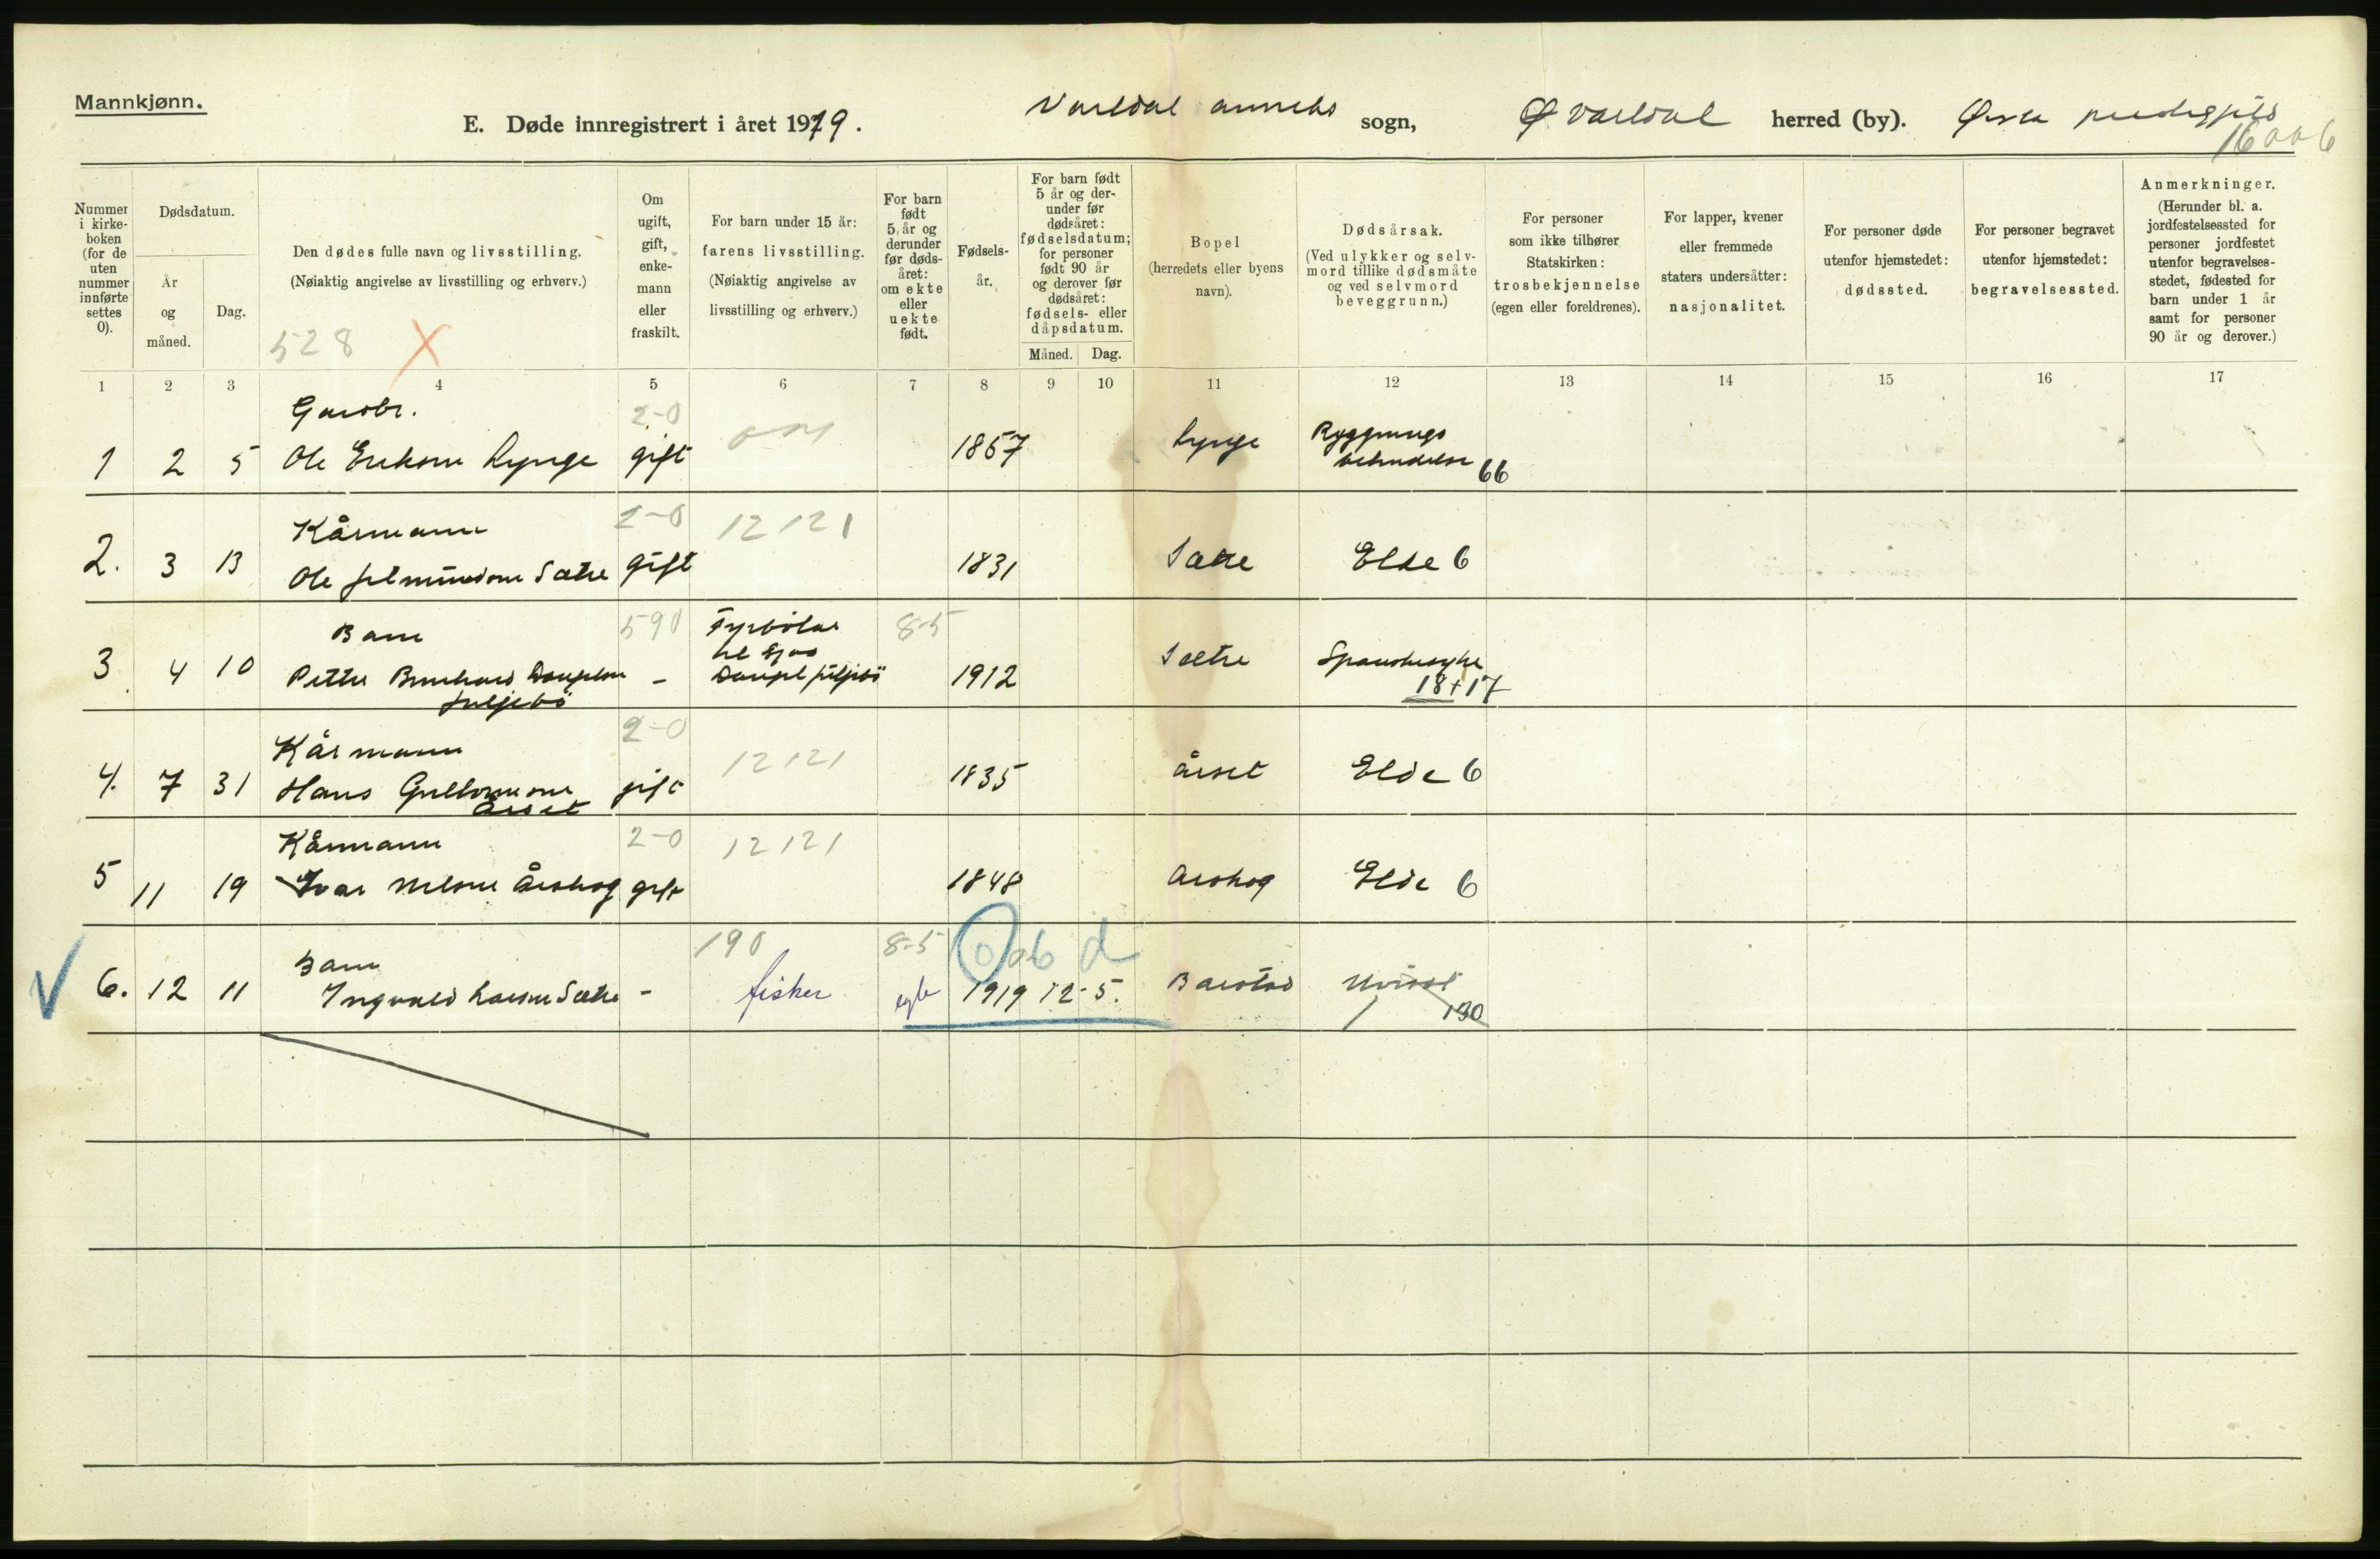 Mannkjønn.
E. Døde innregistrert i året 1919. Vartdal anneks sogn, Ø Vartdal herred (by). Ørsta prestegjeld
16006
Nummer i kirke-boken (for de uten nummer innførte settes 0).
Dødsdatum.
År og måned.
Dag.
Den dødes fulle navn og livsstilling.
(Nøiaktig angivelse av livsstilling og erhverv.)
528 X
Om ugift, gift, enke-mann eller fraskilt.
For barn under 15 år:
farens livsstilling.
(Nøiaktig angivelse av livsstilling og erhverv.)
For barn født 5 år og derunder før døds-året: om ekte eller uekte født.
Fødsels-år.
For barn født 5 år og der-under før dødsåret: fødselsdatum; for personer født 90 år og derover før dødsåret: fødsels- eller dåpsdatum.
Måned. Dag.
Bopel
(herredets eller byens navn).
Dødsårsak.
(Ved ulykker og selv-mord tillike dødsmåte og ved selvmord beveggrunn.)
For personer som ikke tilhører Statskirken: trosbekjennelse (egen eller foreldrenes).
For lapper, kvener eller fremmede staters undersåtter: nasjonalitet.
For personer døde utenfor hjemstedet: dødssted.
For personer begravet utenfor hjemstedet: begravelsessted.
Anmerkninger.
(Herunder bl. a. jordfestelsessted for personer jordfestet utenfor begravelses-stedet, fødested for barn under 1 år samt for personer 90 år og derover.)
1 2 3 4 5 6 7 8 9 10 11 12 13 14 15 16 17
Gardbr. 2-0
1 2 5 Ole Eriksen Lynge gift 1857 Lynge Ryggmargs 66
Kårmann 2-0 12121
2. 3 13 Ole Sætre gift 1831 Sætre Elde 6
Barn 590 8-5
3 4 10 Petter Bernhard - 1912 Sætre Spanskesyke
18+17
Kårmann 2-0 12121
4. 7 31 Hans gift 1835 Årset Elde 6
Årset
Kårmann 2-0 12121
5 11 19 Ivar Nilsen Årskog gift 1848 Arskog Elde 6
Barn 190 8-5 0 06 d
6. 12 11 Ingvald Larsen Sætre - fisker egte 1919 12-5. Barstad Uvisst
190